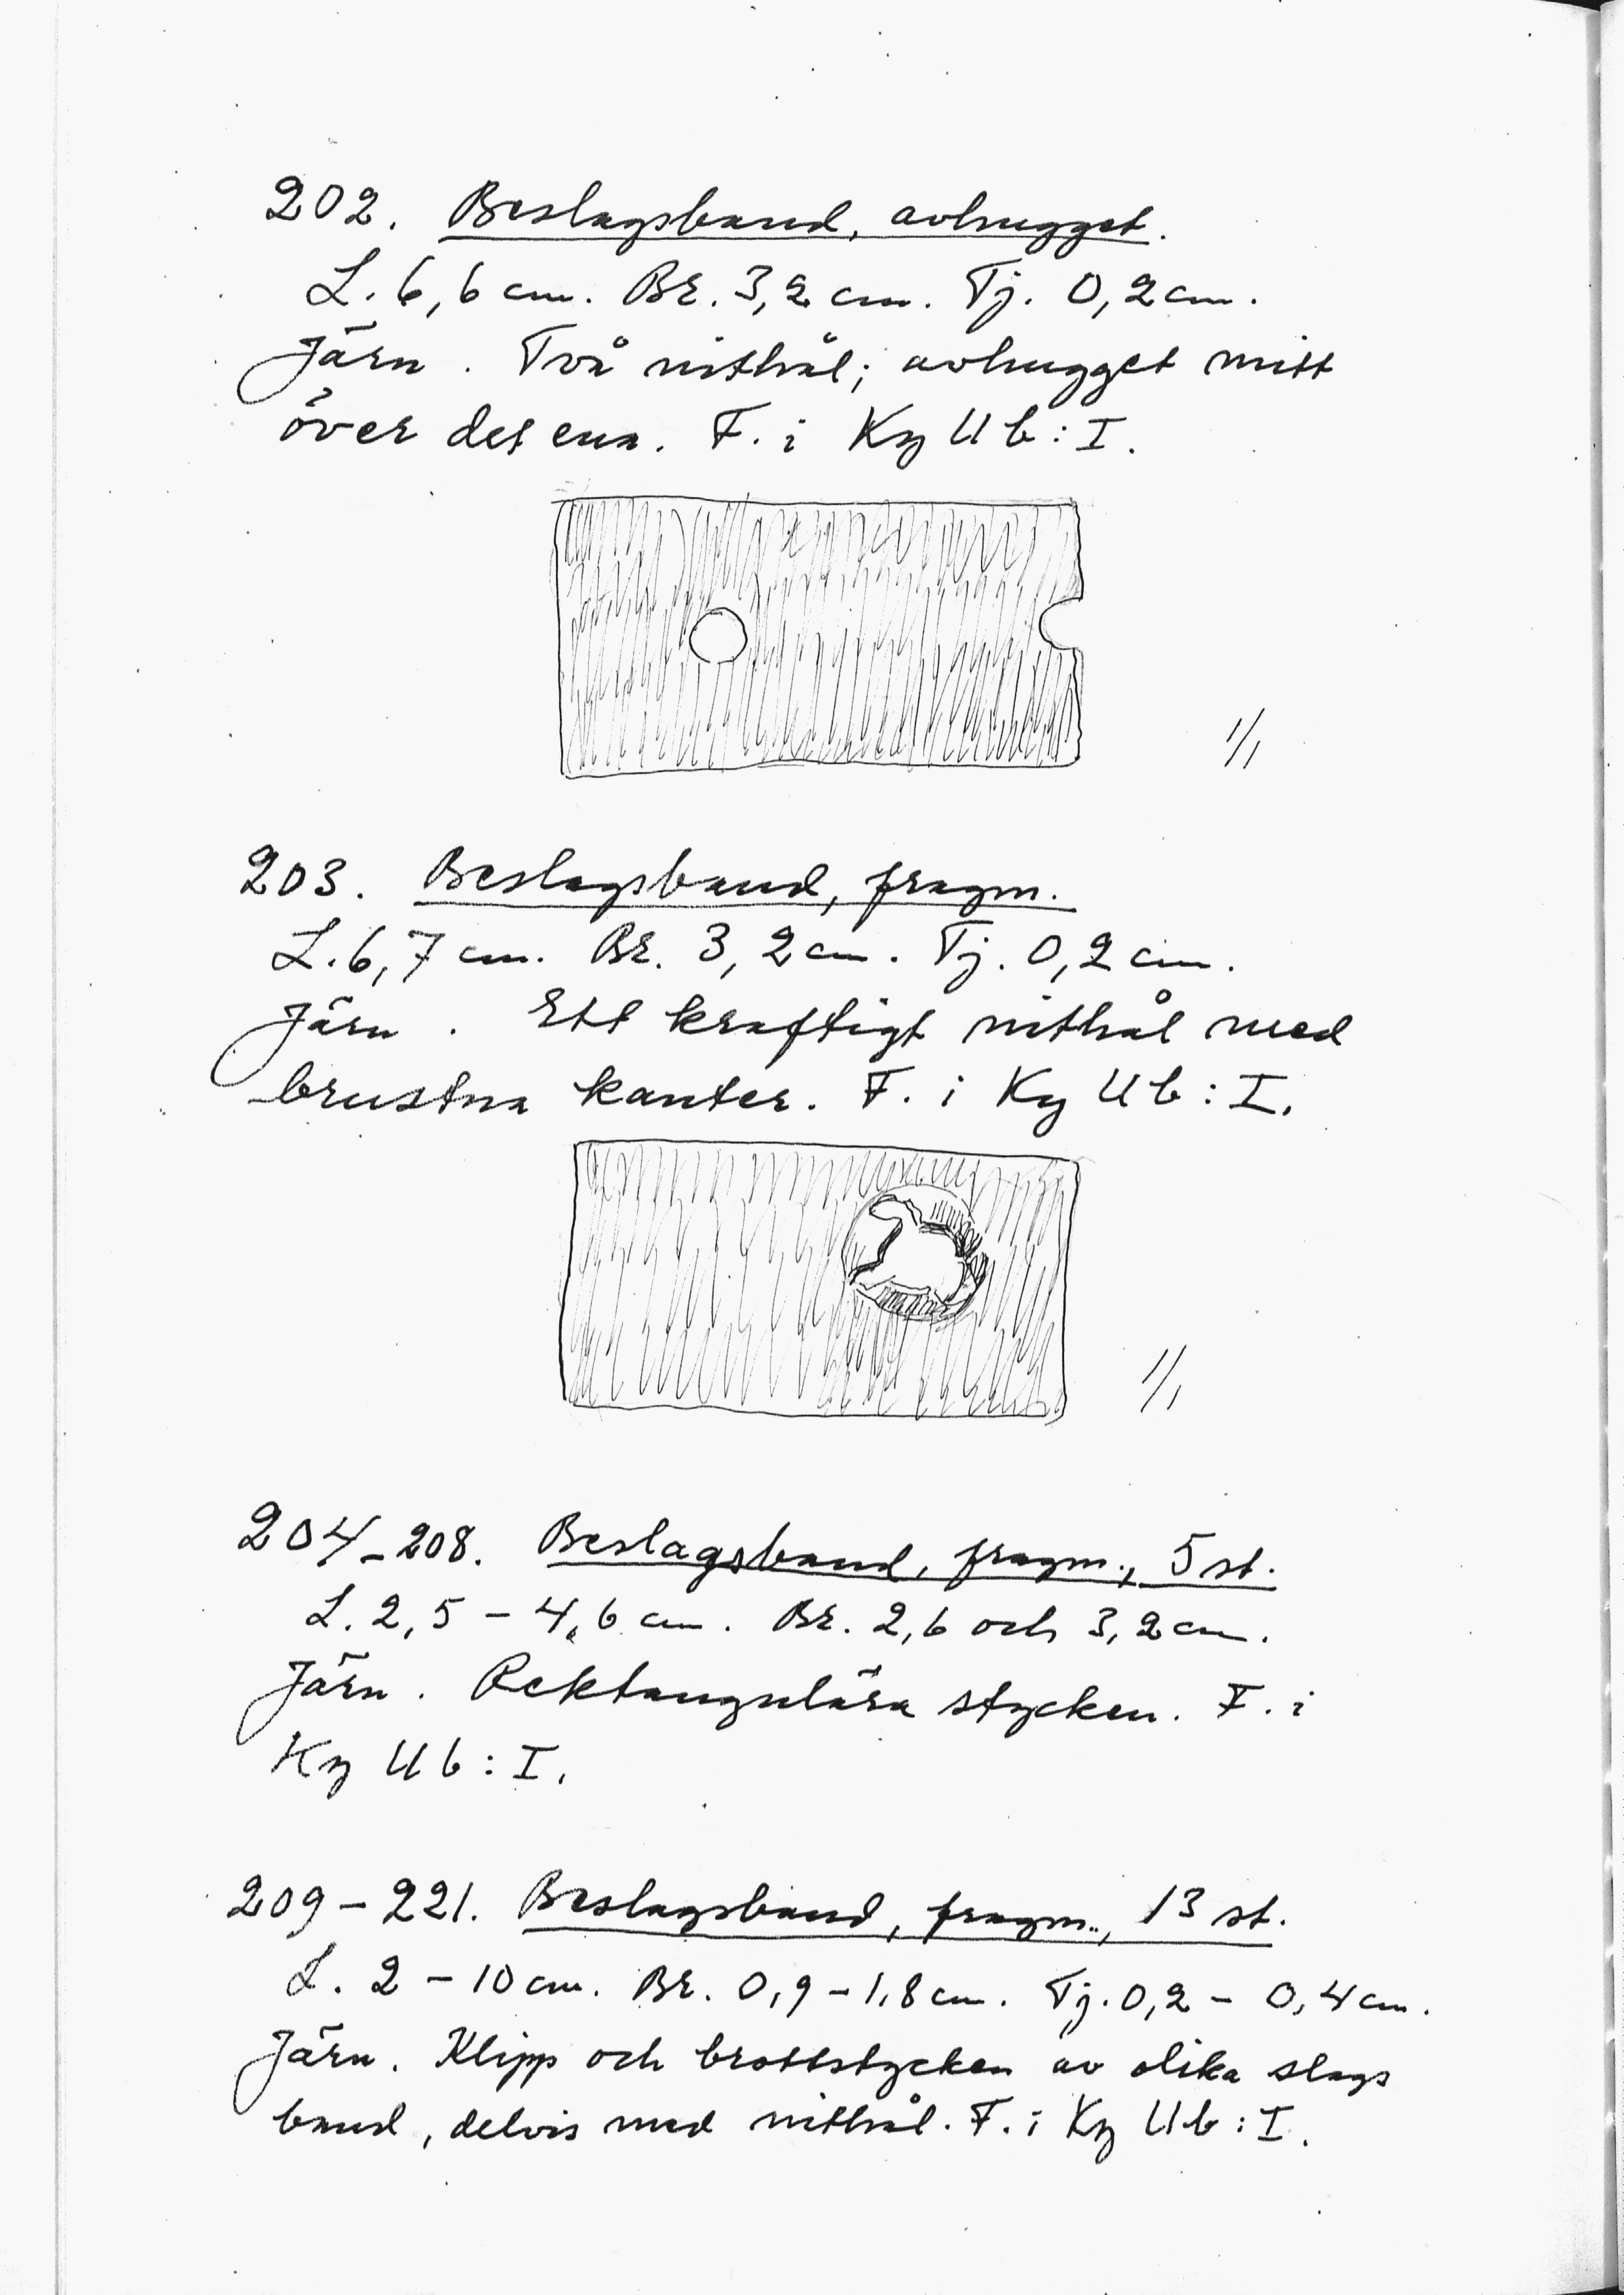 202. Beslagsband, avhugget.
L. 6,6 cm. Br. 3,2 cm. Tj. 0,2 cm.
Järn. Två nithål; avhugget mitt
över det ena. F. i Ky U b : I.
1/1
203. Beslagsband, fragm.
L. 6,7 cm. Br. 3,2 cm. Tj. 0,2 cm.
Järn. Ett kraftigt nithål med
brustna kanter. F. i Ky U b : I.
1/1
204-208. Beslagsband, fragm., 5 st.
L. 2,5 - 4,6 cm. Br. 2,6 och 3,2 cm.
Järn. Rektangulära stycken. F. i
Ky U b : I.
209-221. Beslagsband, fragm., 13 st.
L. 2 - 10 cm. Br. 0,9 - 1,8 cm. Tj. 0,2 - 0,4 cm.
Järn. Klipp och brottstycken av olika slags
band, delvis med nithål. F. i Ky U b : I.